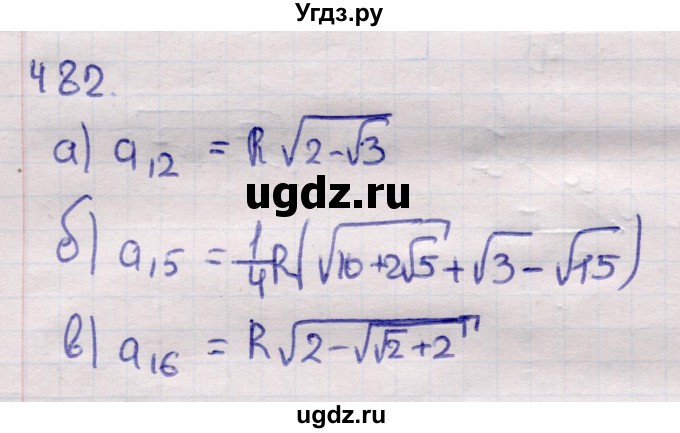 Угдз.ру
482.
а) a₁₂ = R√(2-√3)
ugdz.ru
б) a₁₅ = 1/4 R(√(10+2√5)+√3-√15)
в) a₁₆ = R√(2-√(√2+2))
ugdz.ru